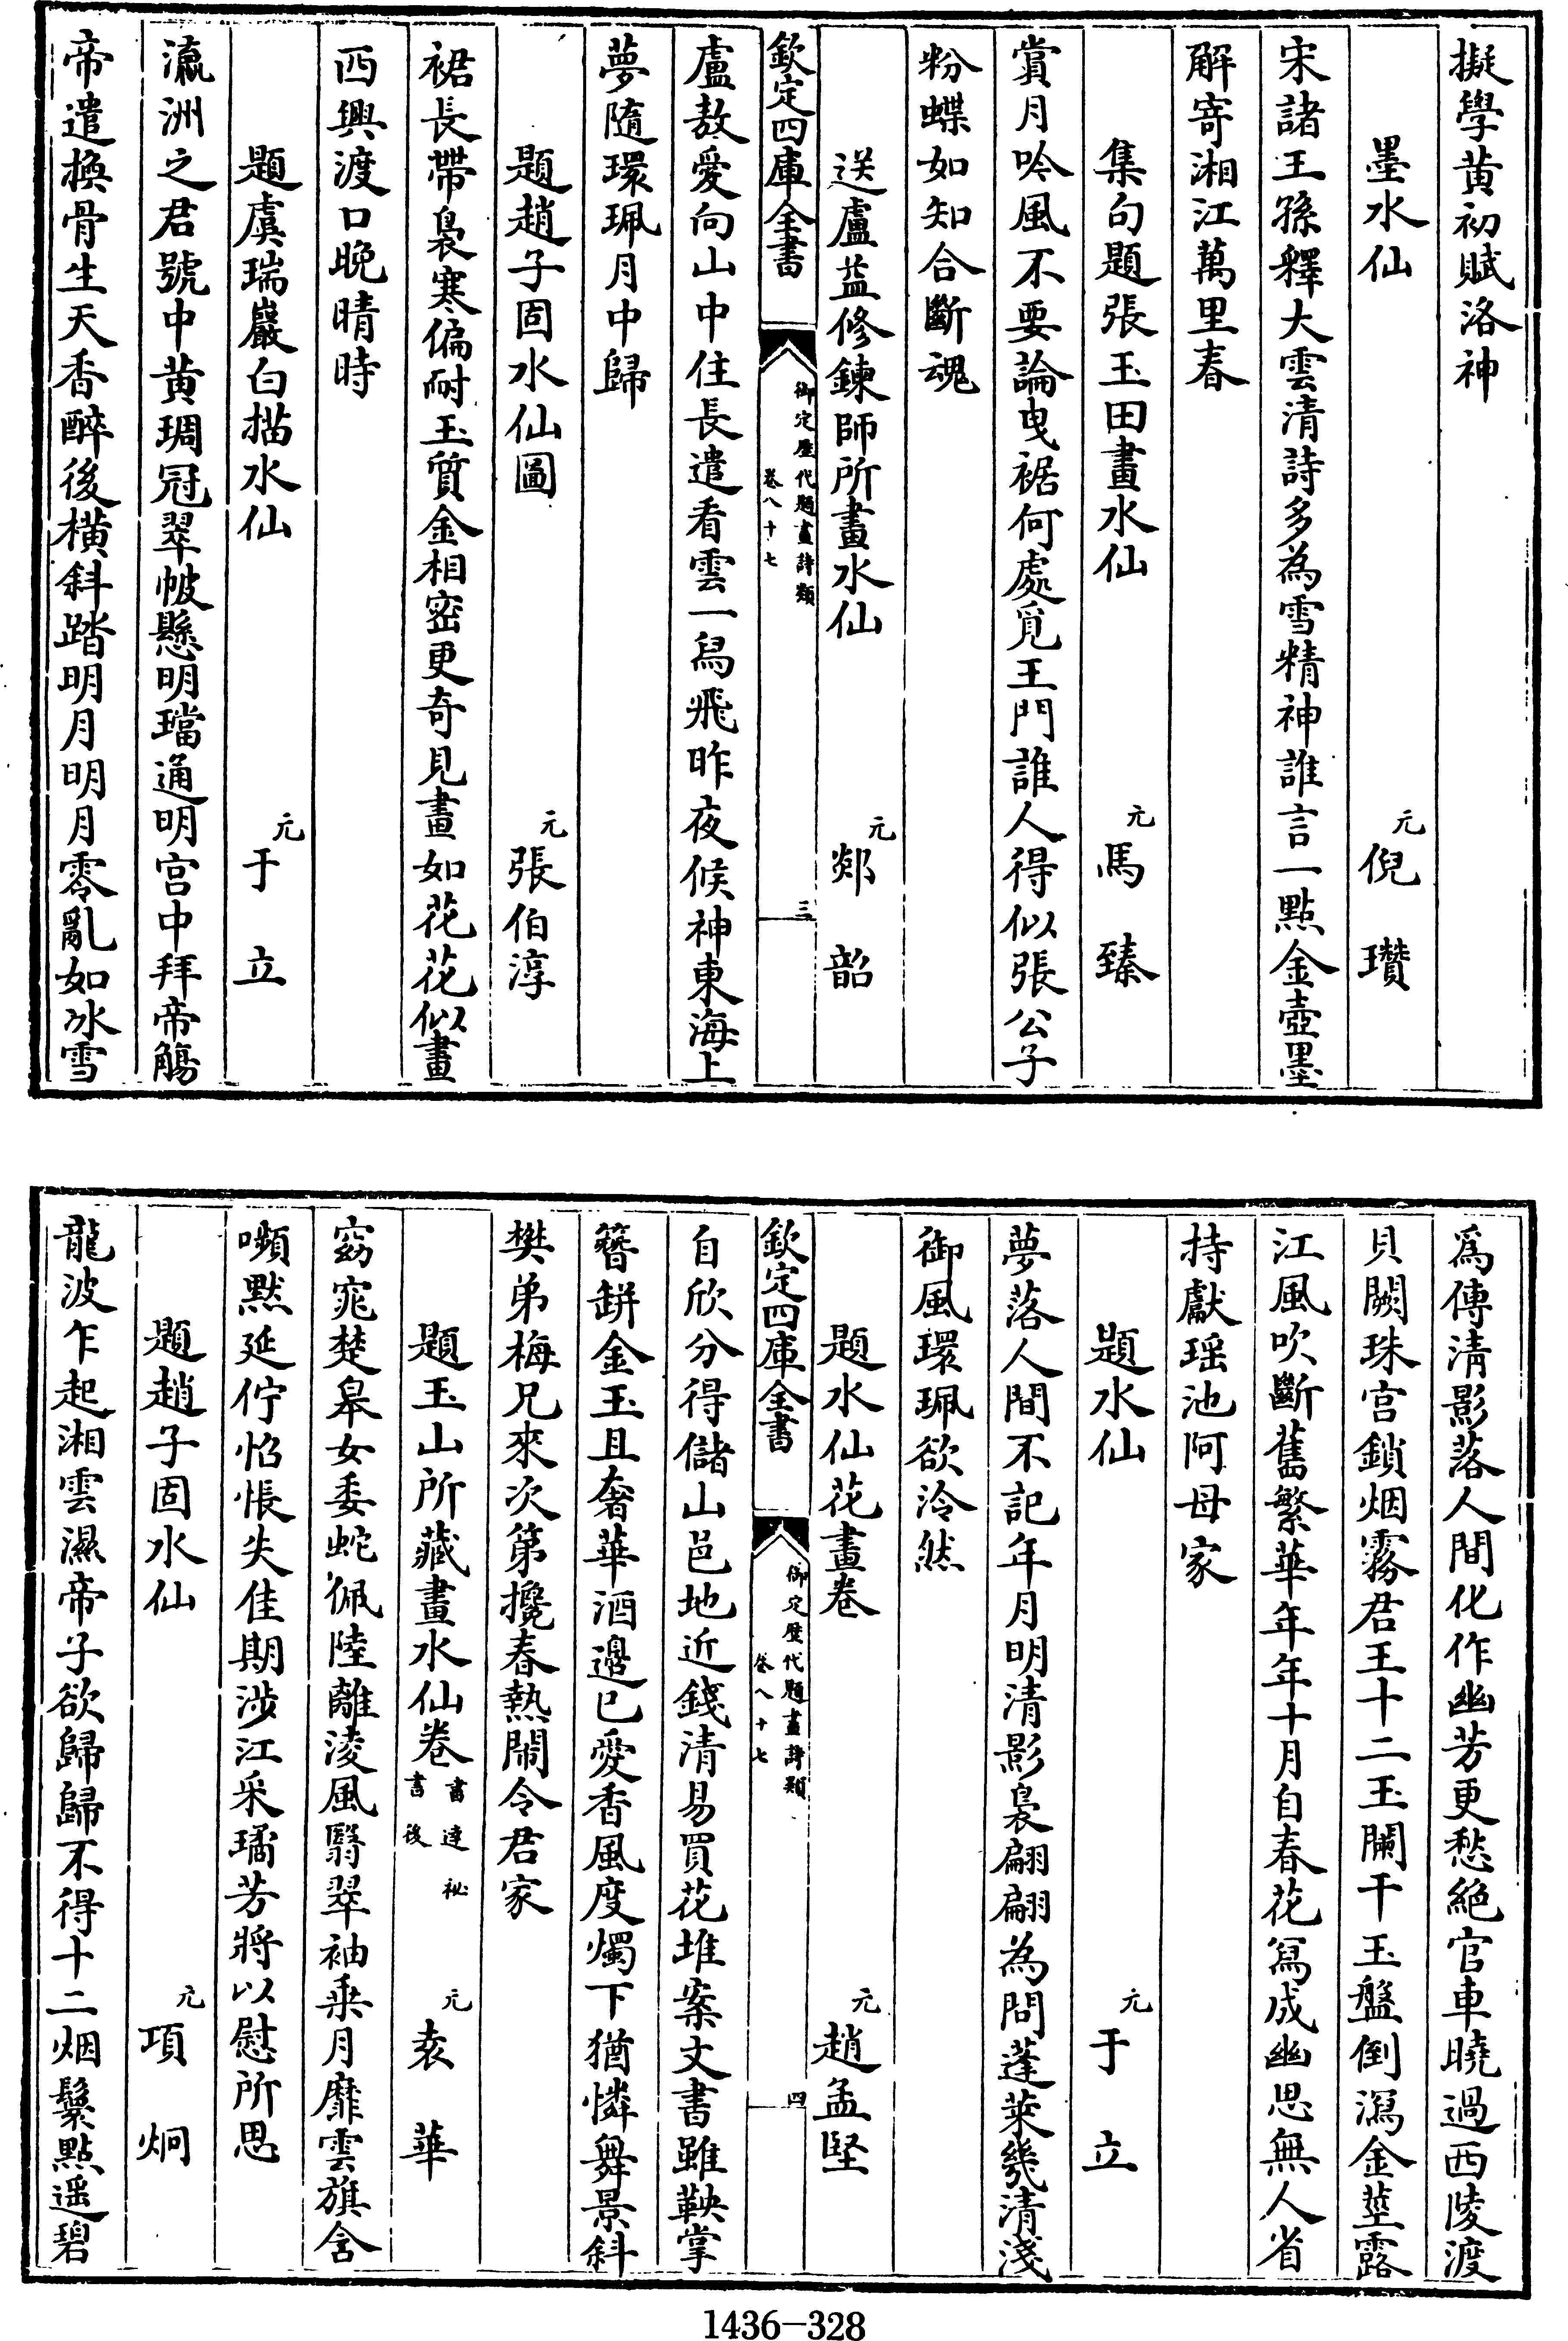 擬學黃初賦洛神
墨水仙 元 倪瓚
宋諸王孫釋大雲清詩多為雪精神誰言一點金壺墨
解寄湘江萬里春
集句題張玉田畫水仙 元 馬臻
賞月吟風不要論曳裾何處覓王門誰人得似張公子
粉蝶如知合斷魂
送盧益修鍊師所畫水仙 元 郯韶
欽定四庫全書 御定歷代題畫詩類 卷八十七 三
盧敖愛向山中住長遣看雲一舄飛昨夜候神東海上
夢隨環珮月中歸
題趙子固水仙圖 元 張伯淳
裙長帶褭寒偏耐玉質金相密更奇見畫如花花似畫
西興渡口晚晴時
題虞瑞巖白描水仙 元 于立
瀛洲之君號中黃琱冠翠帔懸明璫通明宮中拜帝觴
帝遣換骨生天香醉後橫斜踏明月明月零亂如冰雪
爲傳清影落人間化作幽芳更愁絕官車曉過西陵渡
貝闕珠宮鎖烟霧君王十二玉闌干玉盤倒瀉金莖露
江風吹斷舊繁華年年十月自春花寫成幽思無人省
持獻瑶池阿母家
題水仙 元 于立
夢落人間不記年月明清影褭翩翩為問蓬萊幾清淺
御風環珮欲泠然
題水仙花畫卷 元 趙孟堅
欽定四庫全書 御定歷代題畫詩類 卷八十七 四
自欣分得儲山邑地近錢清易買花堆案文書雖鞅掌
簪缾金玉且奢華酒邊已愛香風度燭下猶憐舞景斜
樊弟梅兄來次第攙春熱鬧令君家
題玉山所藏畫水仙卷 書達祕書後 元 袁華
窈窕楚皋女委蛇佩陸離淩風翳翠袖乘月靡雲旗含
嚬黙延佇怊悵失佳期涉江采璚芳將以慰所思
題趙子固水仙 元 項炯
龍波乍起湘雲濕帝子欲歸歸不得十二烟鬟點遥碧
1436-328